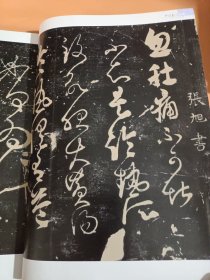 張旭書
忽肚痛不可堪
不知是冷熱所
致欲服大黃湯
冷熱俱有益
如何為